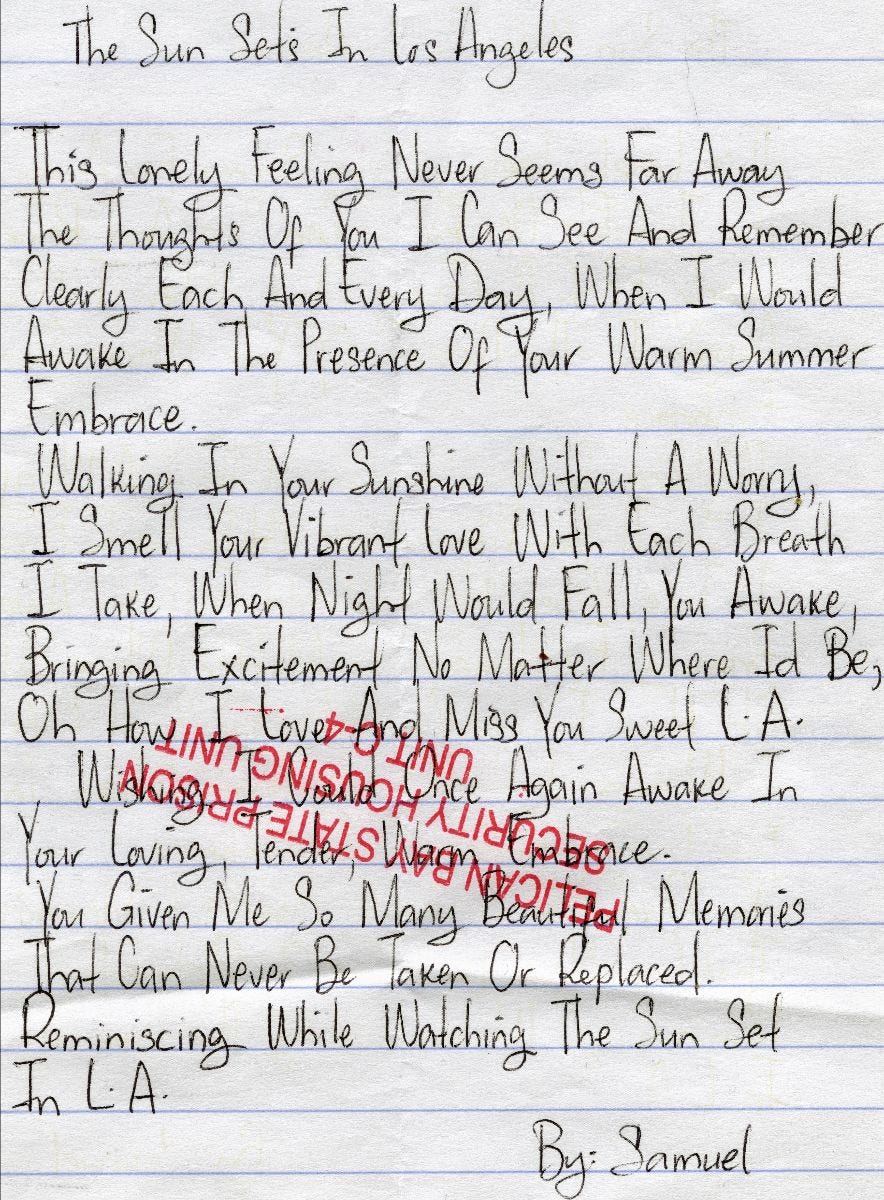 The Sun Sets In Los Angeles
This Lonely Feeling Never Seems Far Away
The Thoughts Of You I Can See And Remember
Clearly Each And Every Day, When I Would
Awake In The Presence Of Your Warm Summer
Embrace.
Walking In Your Sunshine Without A Worry,
I Smell Your Vibrant Love With Each Breath
I Take, When Night Would Fall, You Awake,
Bringing Excitement No Matter Where Id Be,
Oh How I Love And Miss You Sweet L.A.
Wishing I Could Once Again Awake In
Your Loving, Tender, Warm Embrace.
You Given Me So Many Beautiful Memories
That Can Never Be Taken Or Replaced.
Reminiscing While Watching The Sun Set
In L.A.
By: Samuel
PELICAN BAY STATE PRISON
SECURITY HOUSING UNIT
UNIT C-4